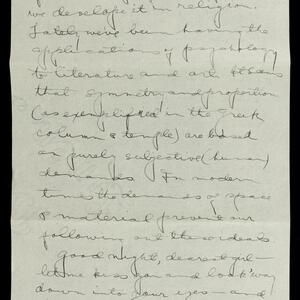 we develope it in religion.
Lately we've been having the
applications of psychology
to literature and art. It seems
that symmetry and proportion
(as exemplified in the Greek
column & temple) are based
on purely subjective (human)
demands. In modern
times the demands of space
& material prevent our
following out these ideals
Good night, dearest girl—
let me kiss you and look 'way
down into your eyes — and